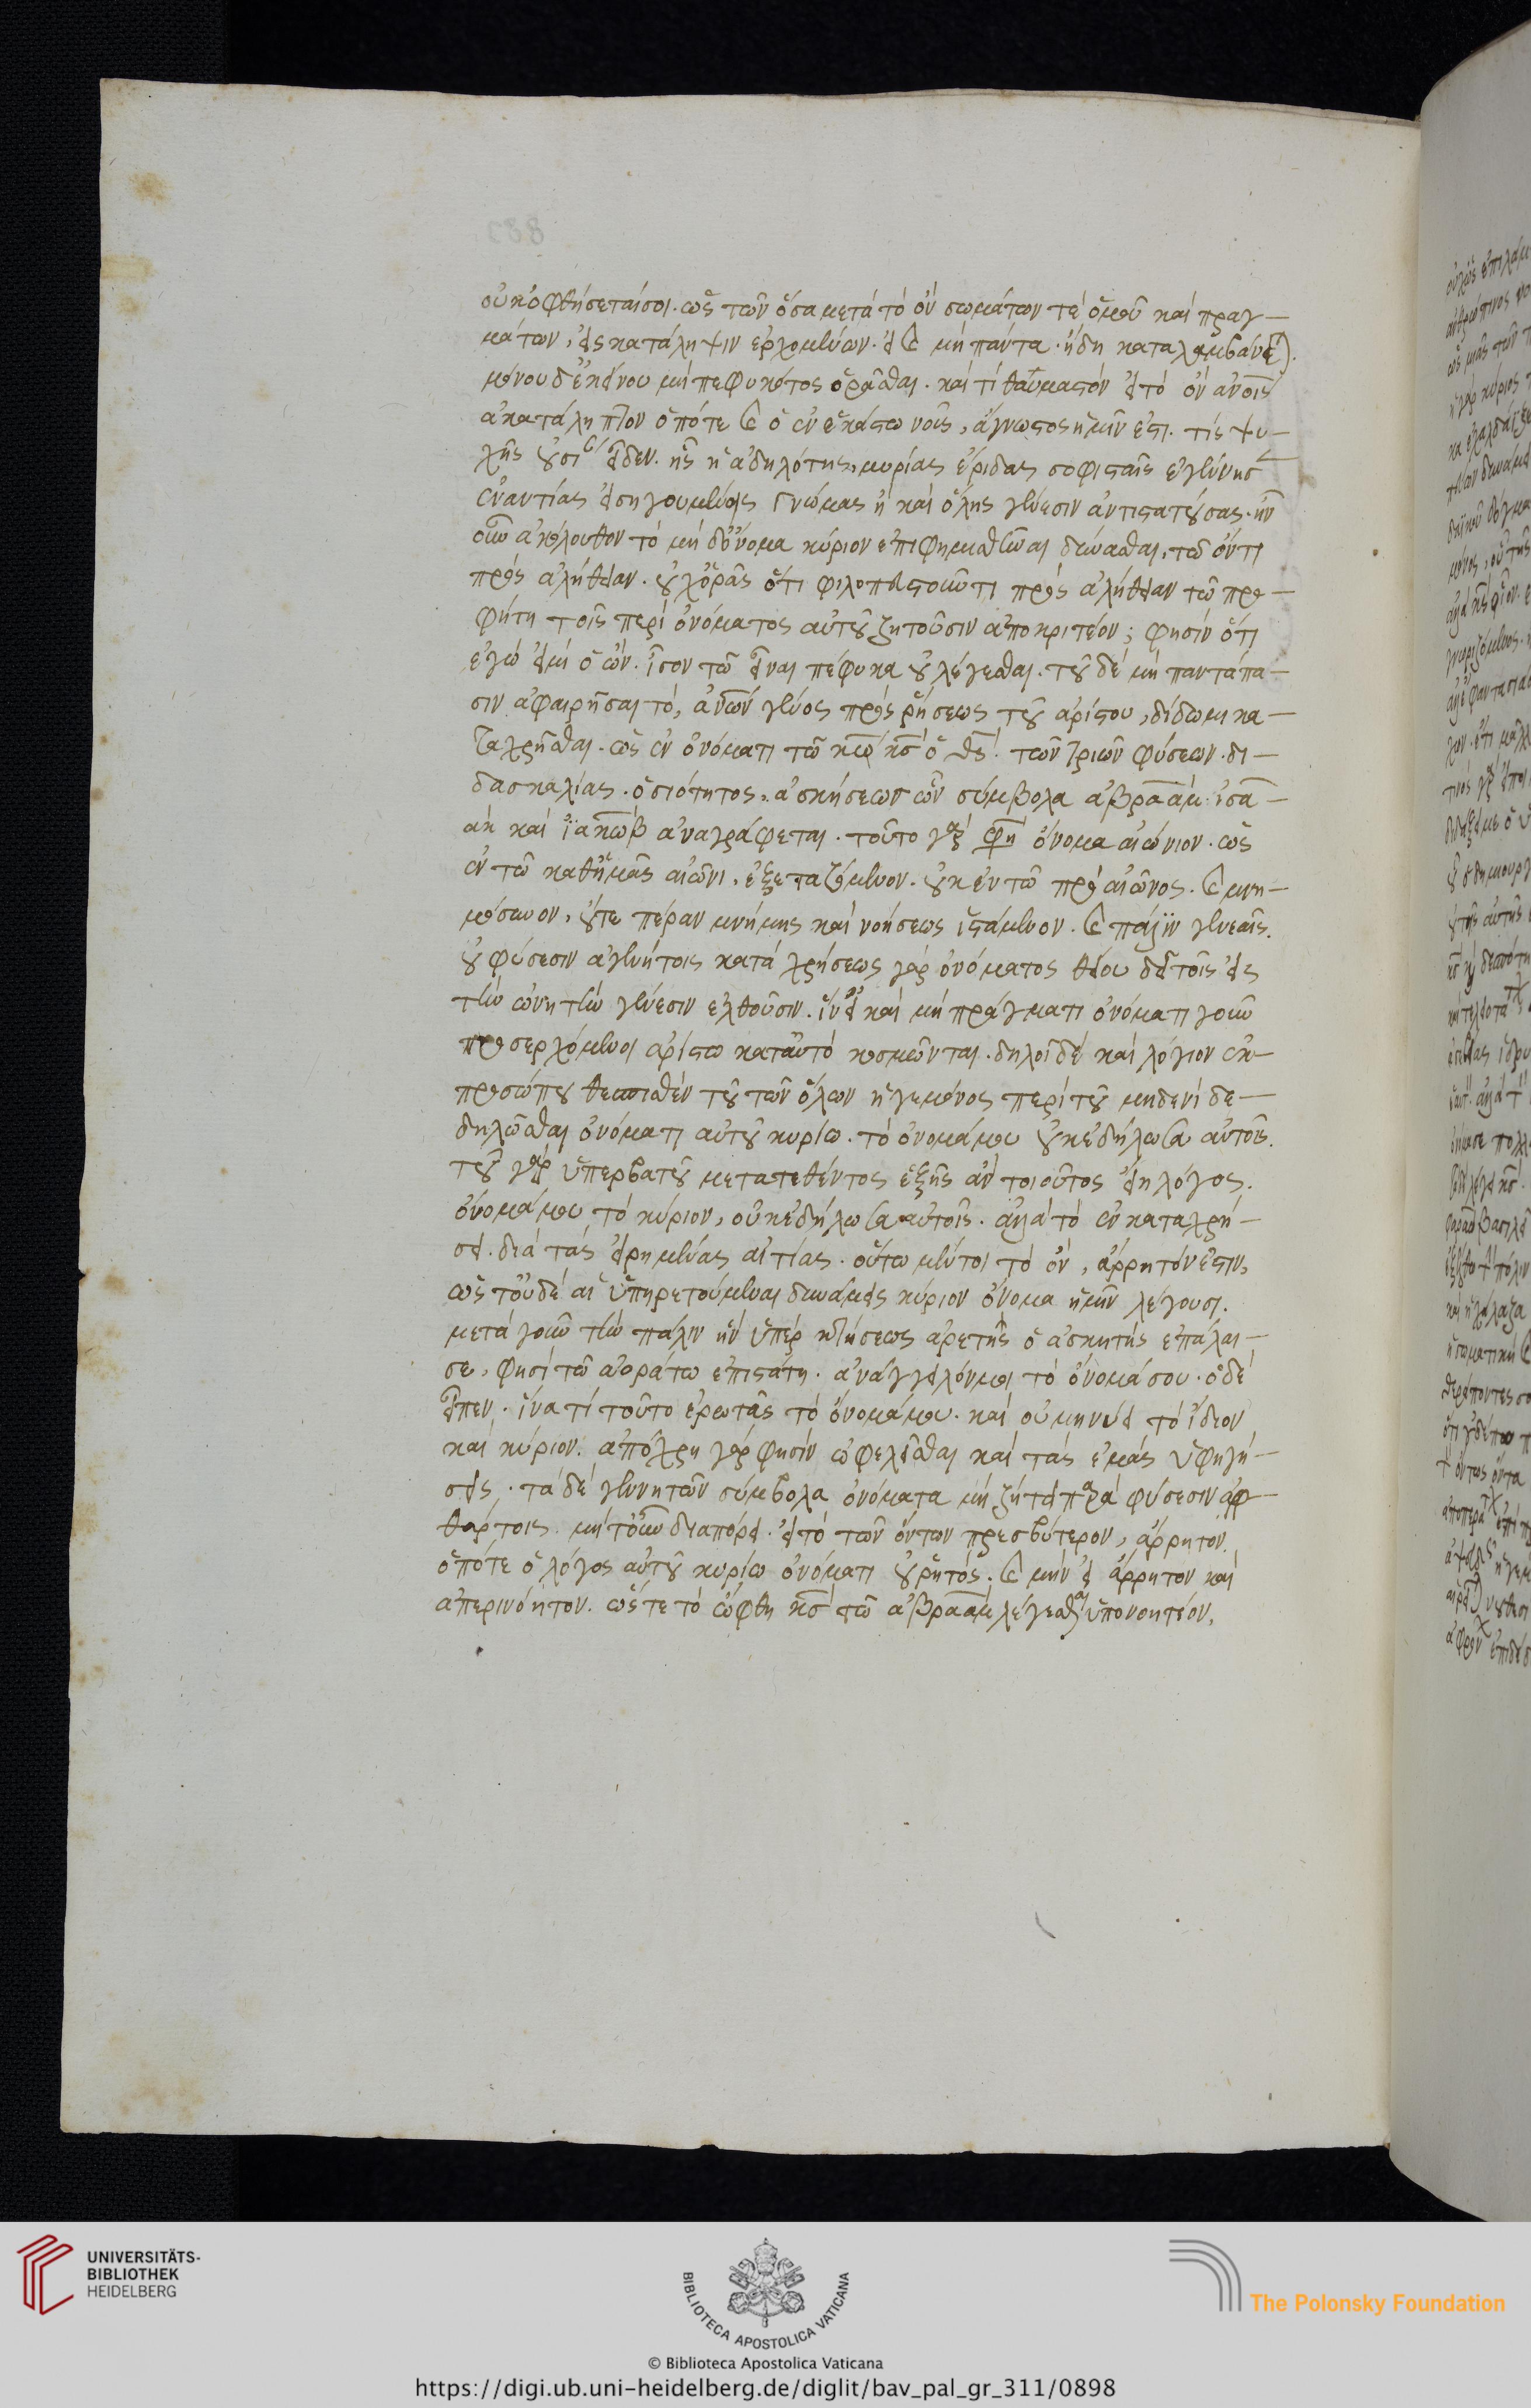 οὐκ ὀφθήσεταίσοι. ὡς τῶν ὅσα μετὰ τὸ ὂν σωμάτων τὲ ὁμοῦ καὶ πραγ—
μάτων, εἰς κατάληψιν ἐρχομένων. εἰ καὶ μὴ πάντα. ἤδη καταλαμβάνεται.
μόνου δ' ἐκείνου μὴ πεφυκότος ὁρᾶσθαι. καὶ τί θαυμαστὸν εἰ τὸ ὂν ἀνοις
ἀκατάληπτον ὁπότε καὶ ὁ ἐν ἑκάστω νοῦς, ἄγνωστος ἡμῖν ἐστι. τίς ψυ—
χῆς οὐσίαν εἶδεν. ἧς ἡ ἀδηλότης, μυρίας ἔριδας σοφισταῖς ἐγέννησεν
ἐναντίας εἰσηγουμένοις γνώμας ἢ καὶ ὅλης γένεσιν ἀντιστατούσας. ἦν
οὖν ἀκόλουθον τὸ μὴ δ' ὄνομα κύριον ἐπιφημισθῆναι δύνασθαι, τῶ ὄντι
πρὸς ἀλήθειαν. οὐχ ὁρᾶς ὅτι φιλοπευστοῦντι πρὸς ἀλήθειαν τῶ προ—
φήτη τοῖς περὶ ὀνόματος αὐτοῦ ζητοῦσιν ἀποκριτέον; φησὶν ὅτι
ἐγώ εἰμι ὁ ὤν. ἴσον τῶ εἶναι πέφυκα οὐ λέγεσθαι. τοῦ δὲ μὴ παντάπα—
σιν ἀφαιρῆσαι τὸ, ἀνων γένος πρὸς ῥήσεως τοῦ ἀρίστου, δίδωμι κα—
ταχρῆσθαι. ὡς ἐν ὀνόματι τῶ κω κς ὁ θς. τῶν τριῶν φύσεων. δι—
δασκαλίας. ὁσιότητος, ἀσκήσεως ὧν σύμβολα ἀβραάμ. ἰσα—
ὰκ καὶ ἰακὼβ ἀναγράφεται. τοῦτο γάρ φησὶ ὄνομα αἰώνιον. ὡς
ἐν τῶ καθ' ἡμᾶς αἰῶνι, ἐξεταζόμενον. οὐκ ἐν τῶ πρὸ αἰῶνος. καὶ μνη—
μόσυνον, οὔτε πέραν μνήμης καὶ νοήσεως ἱστάμενον. καὶ πάλιν γενεαῖς.
οὐ φύσεσιν ἀγενήτοις κατὰ χρήσεως γὰρ ὀνόματος θείου δεῖ τοῖς εἰς
τὴν ωνητὴν γένεσιν ἐλθοῦσιν. ἵν' εἰ καὶ μὴ πράγματι ὀνόματι γοῦν
προσερχόμενοι ἀρίστω κατ' αὐτὸ κοσμοῦνται. δηλοῖ δὲ καὶ λόγιον ἐκ
προσώπου θεσπισθὲν τοῦ τῶν ὅλων ἡγεμόνος περὶ τοῦ μηδενὶ δε—
δηλῶσθαι ὀνόματι αὐτοῦ κυρίω. τὸ ὄνομά μου οὐκ ἐδήλωσα αὐτοῖς.
τοῦ γὰρ ὑπερβατοῦ μετατεθέντος ἑξῆς ἂν τοιοῦτος εἴη λόγος.
ὄνομά μου τὸ κύριον, οὐκ ἐδήλωσα αὐτοῖς. ἀλλὰ τὸ ἐν καταχρή—
σει. διὰ τὰς εἰρημένας αἰτίας. οὕτω μέντοι τὸ ὂν, ἄρρητόν ἐστιν,
ὡς τοῦ δὲ αἱ ὑπηρετούμεναι δυνάμεις κύριον ὄνομα ἡμῖν λέγουσι.
μετὰ γοῦν τὴν πάλην ἣν ὑπὲρ κτήσεως ἀρετῆς ὁ ἀσκητὴς ἐπάλαι—
σε, φησὶ τῶ ἀοράτω ἐπιστάτη. ἀνάγγειλόνμοι τὸ ὄνομά σου. ὁ δὲ
εἶπεν. ἵνα τί τοῦτο ἐρωτᾶς τὸ ὄνομά μου. καὶ οὐ μηνύει τὸ ἴδιον
καὶ κύριον. ἀπόχρη γὰρ φησὶν ὠφελεῖσθαι καὶ τὰς ἐμὰς ὑφηγή—
σεις. τὰ δὲ γεννητῶν σύμβολα ὀνόματα μὴ ζήτει παρὰ φύσεσιν ἀφ—
θάρτοις. μὴ τοίνυν διαπόρει. εἰ τὸ τῶν ὄντων πρεσβύτερον, ἄρρητον
ὁπότε ὁ λόγος αὐτοῦ κυρίω ὀνόματι οὐ ῥητός. καὶ μὴν εἰ ἄρρητον καὶ
ἀπερινόητον. ὥστε τὸ ὤφθη κς τῶ ἀβραὰμ λέγεσθαι ὑπονοητέον.
UNIVERSITÄTS-
BIBLIOTHEK
HEIDELBERG
BIBLIOTECA APOSTOLICA VATICANA
The Polonsky Foundation
© Biblioteca Apostolica Vaticana
https://digi.ub.uni-heidelberg.de/diglit/bav_pal_gr_311/0898